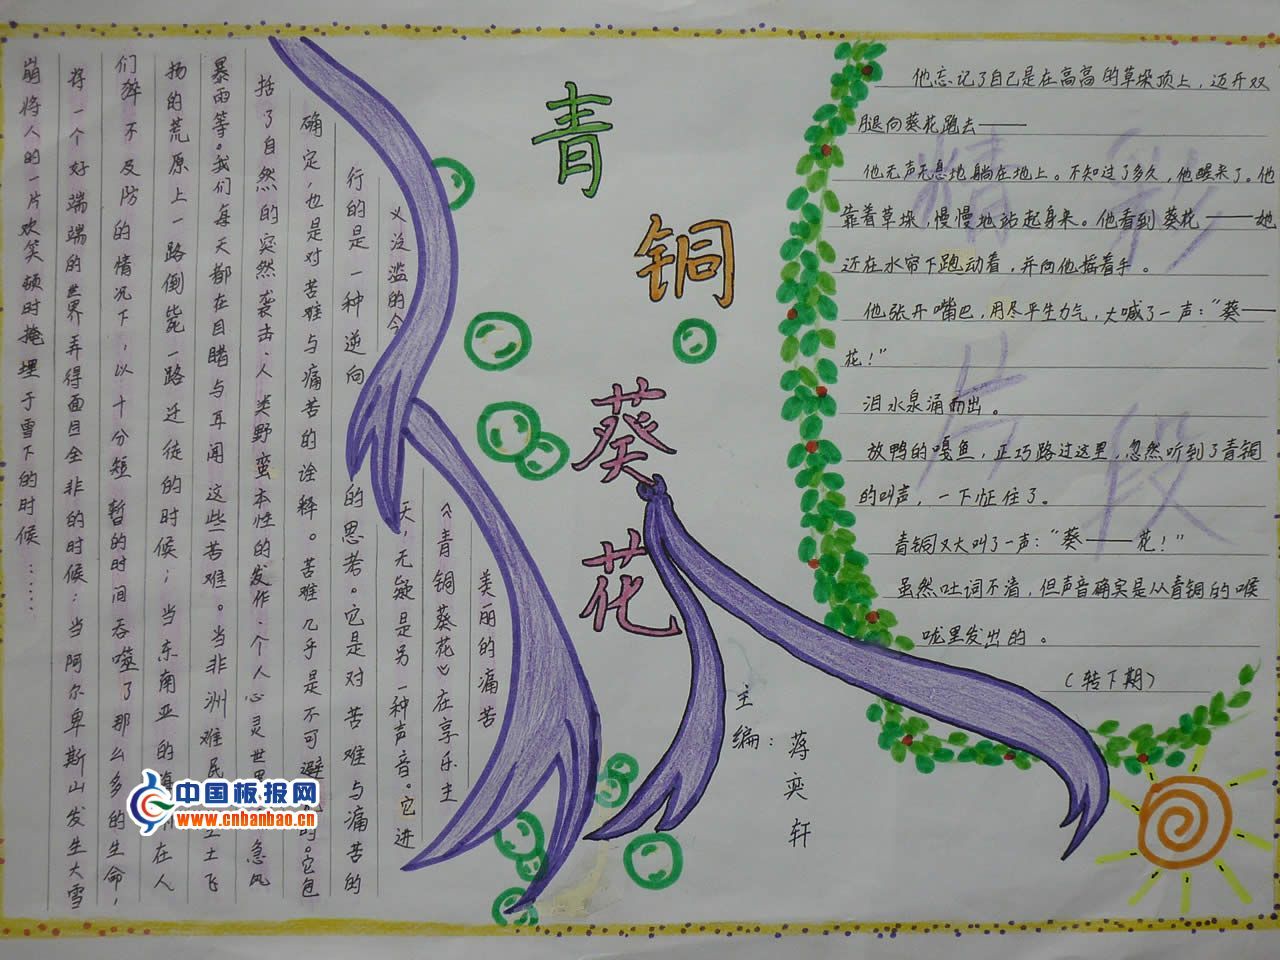 青
铜
葵
花
主编：蒋奕轩
精彩
片段
他忘记了自己是在高高的草垛顶上，迈开双
腿向葵花跑去——
他无声无息地躺在地上。不知过了多久，他醒来了。他
靠着草垛，慢慢地站起身来。他看到葵花——她
还在水帘下跑动着，并向他摇着手。
他张开嘴巴，用尽平生力气，大喊了一声：“葵——
花！”
泪水泉涌而出。
放鸭的嘎鱼，正巧路过这里，忽然听到了青铜
的叫声，一下怔住了。
青铜又大叫了一声：“葵——花！”
虽然吐词不清，但声音确实是从青铜的喉
咙里发出的。
（转下期）
美丽的痛苦
《青铜葵花》在享乐主
义泛滥的今天，无疑是另一种声音。它进
行的是一种逆向的思考。它是对苦难与痛苦的
确定，也是对苦难与痛苦的诠释。苦难几乎是不可避的。它包
括了自然的突然袭击、人类野蛮本性的发作、个人心灵世界急风
暴雨等。我们每天都在目睹与耳闻这些苦难。当非洲难民土飞
扬的荒原上一路倒毙一路迁徒的时候；当东南亚的海在人
们猝不及防的情况下，以十分短暂的时间吞噬了那么多的生命，
将一个好端端的世界弄得面目全非的时候；当阿尔卑斯山发生大雪
崩将人的一片欢笑顿时掩埋于雪下的时候……
中国板报网
www.cnbanbao.cn